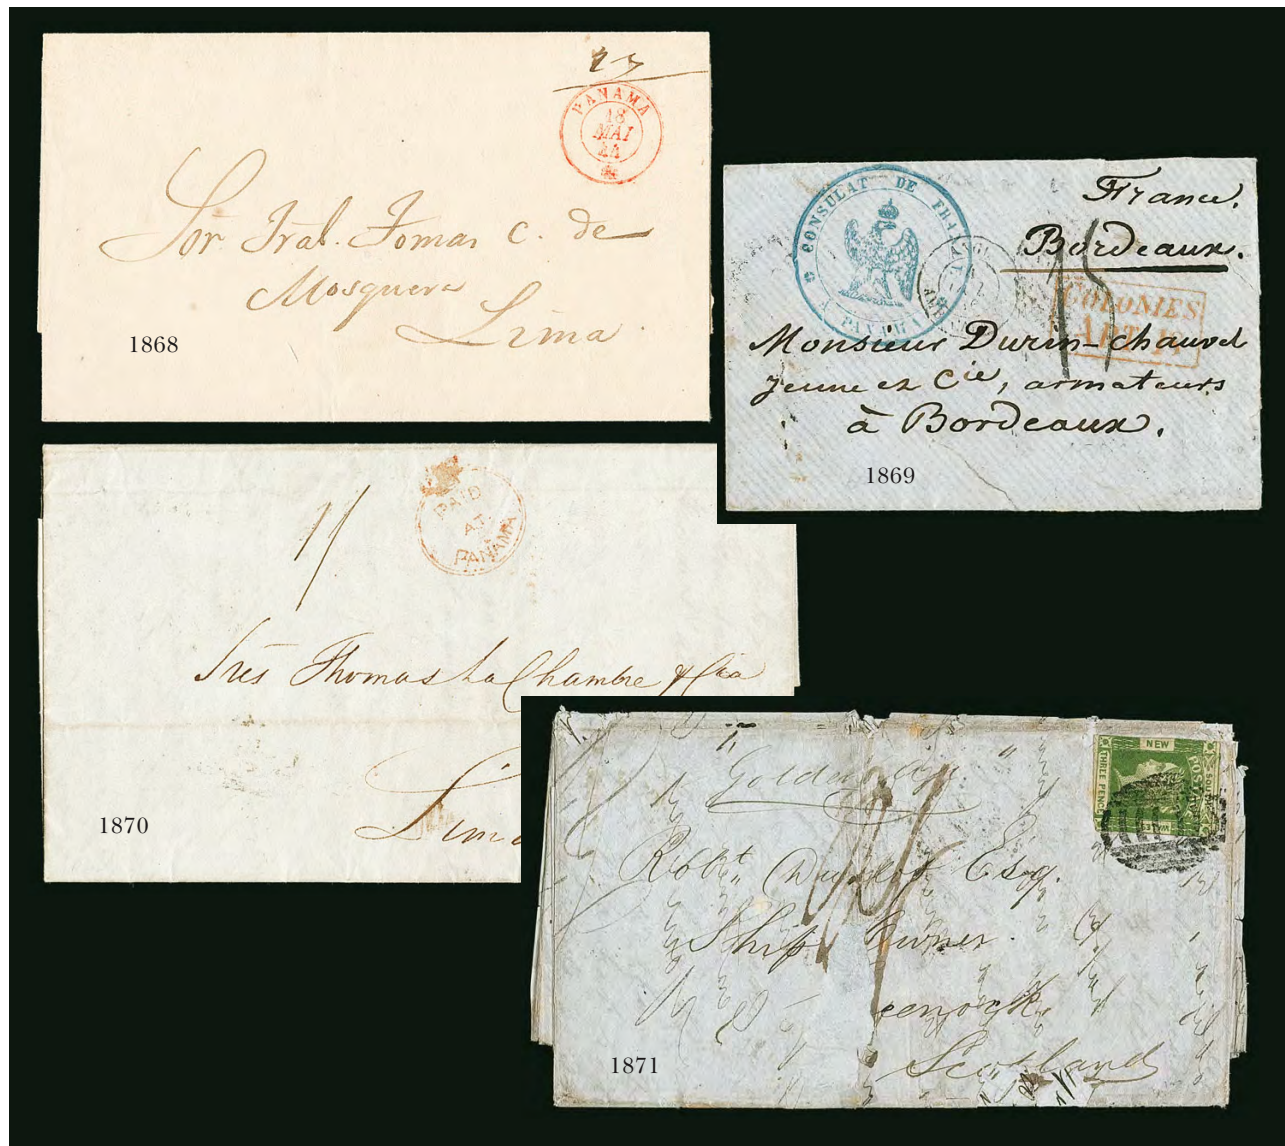 23
PANAMA
18
MAI
44
Sor. Gral. Tomas C. de
Mosquera
Lima.
1868
CONSULAT DE FRANCE
A PANAMA
France.
Bordeaux.
15
COLONIES
ART. 13.
Monsieur Durin-chauvel
jeune et Cie, armateurs
à Bordeaux.
1869
1/
PAID
AT
PANAMA
Sres Thomas La Chambre y Cia
Lima
1870
"Golden Age"
NEW
SOU
THREE PENCE
POSTAGE
WALES
Robt Esq.
Ship Owner.
Scotland
1871